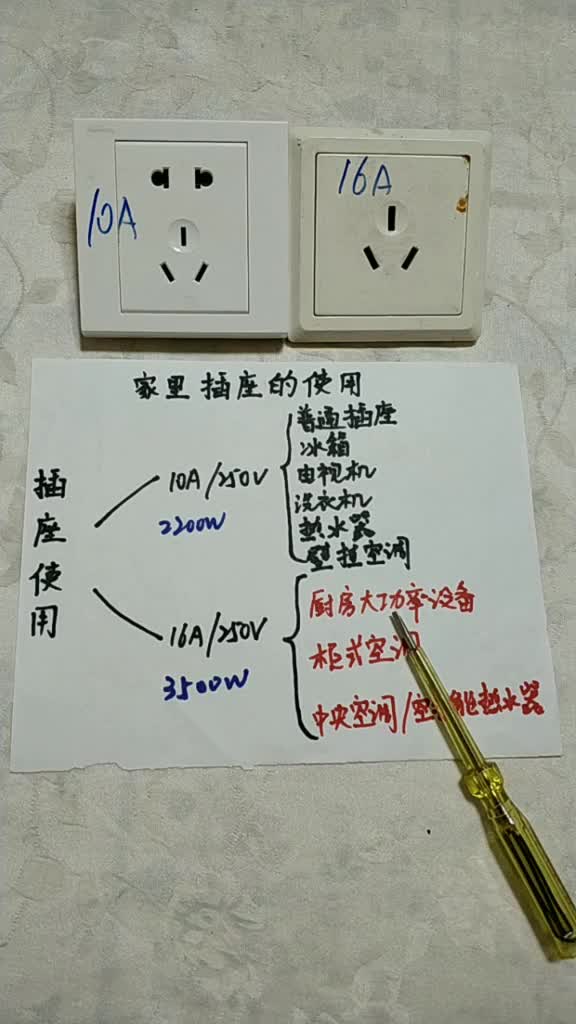 10A
16A
家里插座的使用
插座使用
10A/250V
2200W
普通插座
冰箱
电视机
洗衣机
热水器
壁挂空调
16A/250V
3500W
厨房大功率设备
柜式空调
中央空调/空 能热水器